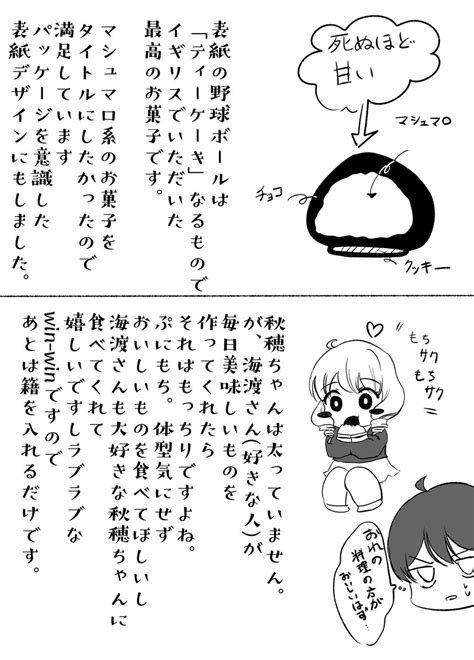 死ぬほど
甘い
マシュマロ
チョコ
クッキー
表紙の野球ボールは
「ティーケーキ」なるもので
イギリスでいただいた
最高のお菓子です。
マシュマロ系のお菓子を
タイトルにしたかったので
満足しています
パッケージを意識した
表紙デザインにもしました。
もち
サク
もち
サク
秋穂ちゃんは太っていません。
が、海渡さん(好きな人)が
毎日美味しいものを
作ってくれたら
それはもっちりですよね。
ぷにもち。体型気にせず
おいしいものを食べてほしいし
海渡さんも大好きな秋穂ちゃんに
食べてくれて
嬉しいですしラブラブな
win-winですので
あとは籍を入れるだけです。
おれの
料理の方が
おいしいはず…